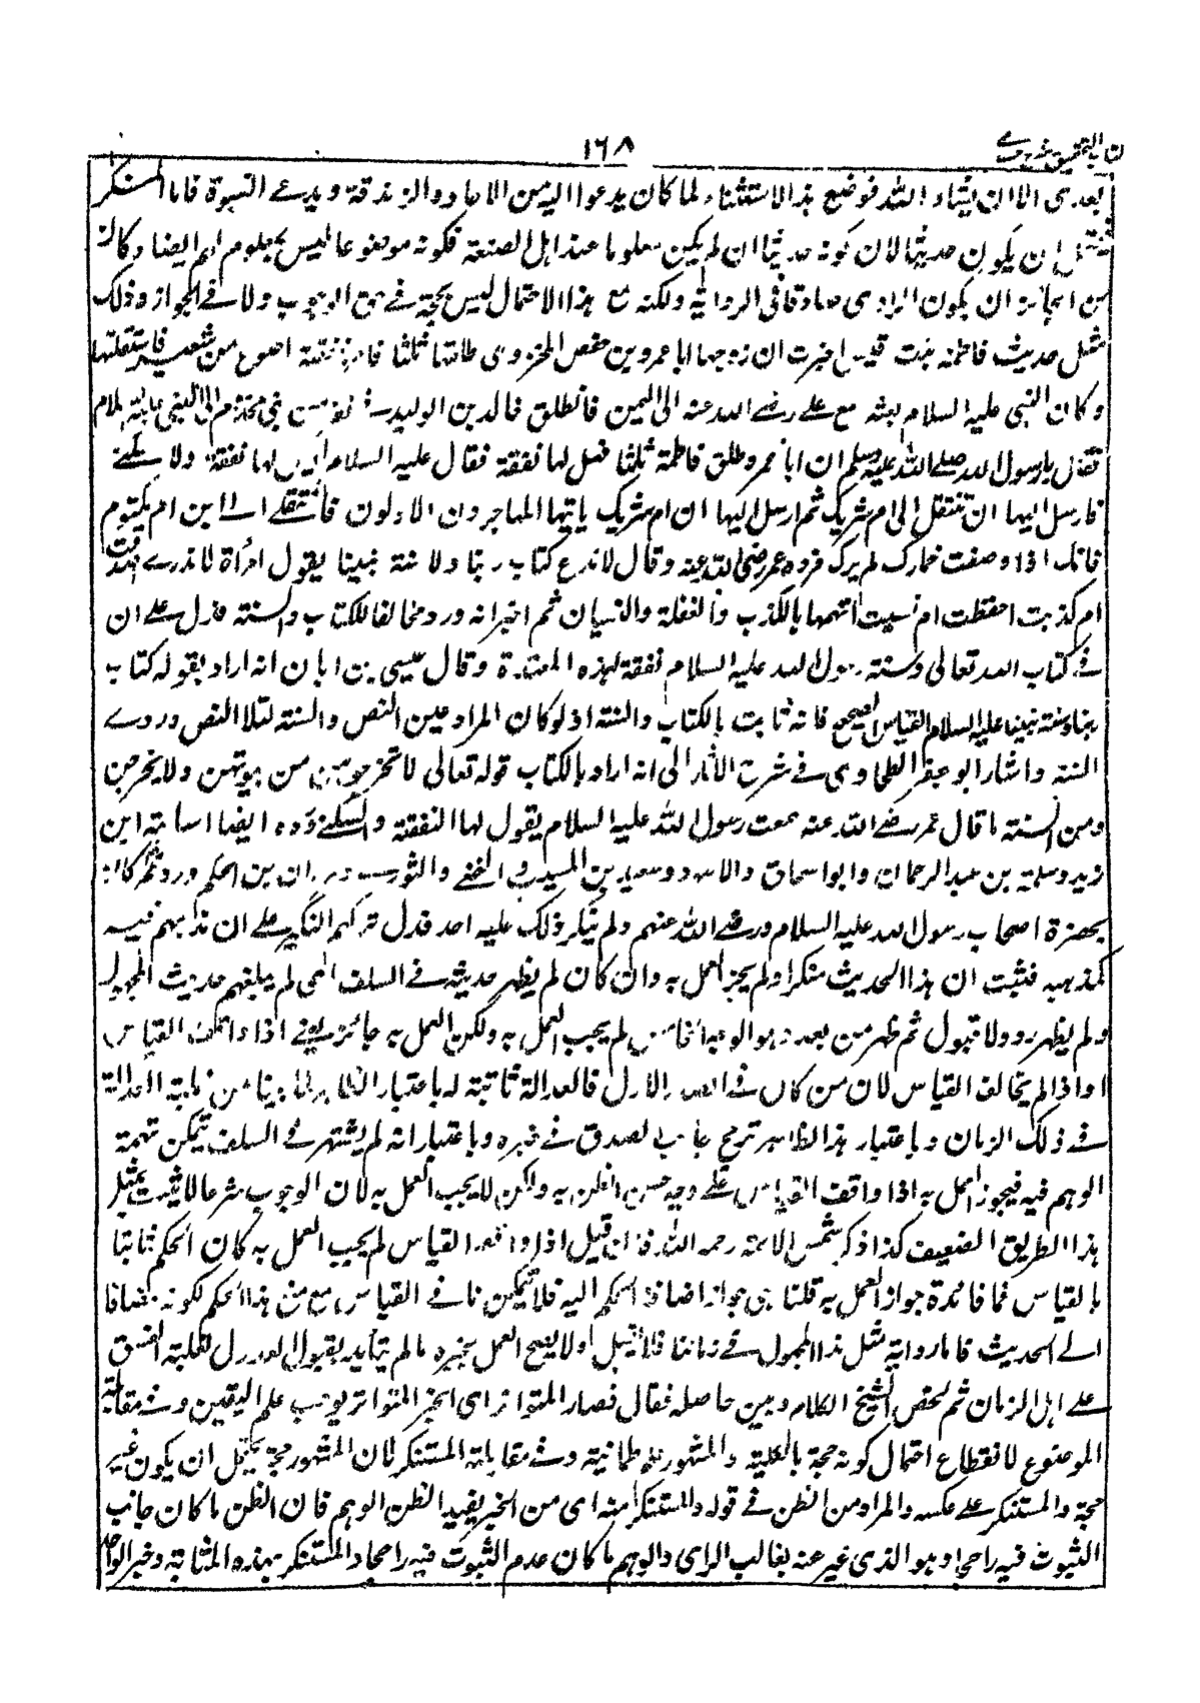 ١٦٨
بعدى الا ان يشاء الله فوضع هذا الاستثناء لما كان يدعوا اليه من الالحاد والزندقة ويدعى النبوة فاما المستنكر
ان يكون حديثا لان كونه حديثا ان لم يكن معلوما عند اهل الصنعة فكونه موضوعا ليس بمعلوم لهم ايضا وكان
من الجائز ان يكون الراوى صادقا فى الرواية ولكنه مع هذا الاحتمال ليس بحجة فى حق الوجوب ولا فى الجواز وذلك
مثل حديث فاطمة بنت قيس اخبرت ان زوجها ابا عمرو بن حفص المخزومى طلقها ثلثا بنفقة اصوع من شعير فاستقلتها
وكان النبى عليه السلام بعثه مع على رضى الله عنه الى اليمن فانطلق خالد بن الوليد فى نفر من بنى مخزوم الى النبى عليه السلام
فقال يا رسول الله صلى الله عليه وسلم ان ابا عمرو طلق فاطمة ثلثا فهل لها نفقة فقال عليه السلام ليس لها نفقة ولا سكنى
فارسل اليها ان تنتقل الى ام شريك ثم ارسل اليها ان ام شريك ياتيها المهاجرون الاولون فانتقلى الى ابن ام مكتوم
فانك اذا وضعت خمارك لم يرك فرده عمر رضى الله عنه وقال لا ندع كتاب ربنا ولا سنة نبينا بقول امرأة لا ندرى اصدقت
ام كذبت احفظت ام نسيت اتهمها بالكذب والغفلة والنسيان ثم اخبر انه ورد مخالفا للكتاب والسنة فدل على ان
فى كتاب الله تعالى وسنة رسول الله عليه السلام نفقة لهذه المعتدة وقال عيسى بن ابان انه اراد بقوله كتاب
ربنا وسنة نبينا عليه السلام القياس الصحيح فانه ثابت بالكتاب والسنة اذ لو كان المراد عين النص والسنة لتلا النص وروى
السنة واشار ابو جعفر الطحاوى فى شرح الآثار الى انه اراد بالكتاب قوله تعالى لا تخرجوهن من بيوتهن ولا يخرجن
ومن السنة ما قال عمر رضى الله عنه سمعت رسول الله عليه السلام يقول لها النفقة والسكنى ورده ايضا اسامة ابن
زيد وسلمة بن عبد الرحمان وابو اسحاق والاسود وسعيد بن المسيب والنخعى والثورى ومروان بن الحكم ورد عمر كان
بحضرة اصحاب رسول الله عليه السلام ورضى الله عنهم ولم ينكر ذلك عليه احد فدل تركهم النكير على ان مذهبهم فيه
كمذهبه فثبت ان هذا الحديث منكرا ولم يجز العمل به وان كان لم يظهر حديثه فى السلف اى لم يبلغهم حديث المجهول
ولم يظهر رد ولا قبول ثم ظهر من بعد وهو الوجه الخامس لم يجب العمل به ولكن العمل به جائز يعنى اذا وافق القياس
او اذا لم يخالف القياس لان من كان فى الصدر الاول فالعدالة ثابتة له باعتبار الظاهر لما بينا من غلبة العدالة
فى ذلك الزمان وباعتبار هذا الظاهر ترجح جانب الصدق فى خبره وباعتبار انه لم يشتهر فى السلف تمكن تهمة
الوهم فيه فيجوز العمل به اذا وافق القياس على وجه حسن الظن به ولكن لا يجب العمل به لان الوجوب شرعا لا يثبت بمثل
هذا الطريق الضعيف كذا ذكر شمس الائمة رحمه الله فان قيل اذا وافقه القياس لم يجب العمل به كان الحكم ثابتا
بالقياس فما فائدة جواز العمل به قلنا هى جواز اضافة الحكم اليه فلا يتمكن نافى القياس من منع هذا الحكم لكونه مضافا
الى الحديث فاما رواية مثل هذا المجهول فى زماننا فلا تقبل او لا يصح العمل بخبره ما لم يتايد بقبول العدول لغلبة الفسق
على اهل الزمان ثم لخص الشيخ الكلام وبين حاصله فقال فصار المتواتر اى الخبر المتواتر يوجب علم اليقين وفى مقابلته
الموضوع لانقطاع احتمال كونه حجة بالكلية والمشهور علم طمانينة وفى مقابلته المستنكر لان المشهور حجة يحتمل ان يكون غير
حجة والمستنكر على عكسه والمراد من الظن فى قوله والمستنكر منه اى من الخبر يفيد الظن الوهم فان الظن ما كان جانب
الثبوت فيه راجحا وهو الذى عبر عنه بغالب الراى والوهم ما كان عدم الثبوت فيه راجحا والمستنكر بهذه المثابة وخبر الواحد